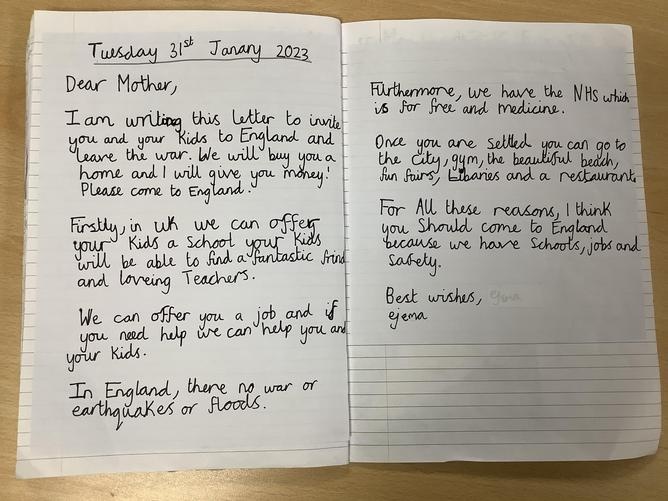 Tuesday 31st Janary 2023
Dear Mother,
I am writing this letter to invite
you and your Kids to England and
leave the war. We will buy you a
home and I will give you money!
Please come to England.
Firstly, in uk we can offer
your Kids a School your Kids
will be able to find a fantastic frind
and loveing Teachers.
We can offer you a job and if
you need help we can help you and
your Kids.
In England, there no war or
earthquakes or floods.
Furthermore, we have the NHS which
is for free and medicine.
Once you are settled you can go to
the City, gym, the beautiful beach,
fun fairs, Libaries and a restaurant
For All these reasons, I think
you Should come to England
because we have Schools, jobs and
safety.
Best wishes,
ejema